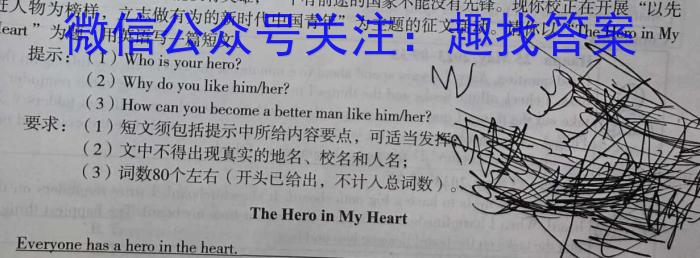 进人物为榜样，立志做有为的新时代中国青年”为主题的征文
微信公众号关注：趣找答案
提示：（1）Who is your hero?
（2）Why do you like him/her?
（3）How can you become a better man like him/her?
要求：（1）短文须包括提示中所给内容要点，可适当发挥
（2）文中不得出现真实的地名、校名和人名；
（3）词数80个左右（开头已给出，不计入总词数）。
The Hero in My Heart
Everyone has a hero in the heart.